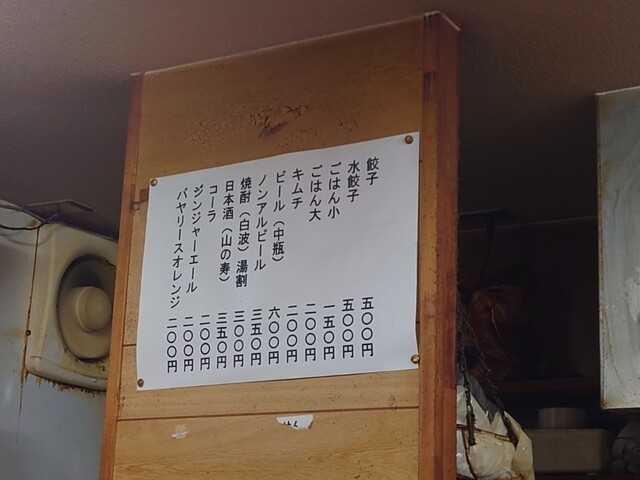 餃子 五〇〇円
水餃子 五〇〇円
ごはん小 一五〇円
ごはん大 二〇〇円
キムチ 二〇〇円
ビール（中瓶） 六〇〇円
ノンアルビール 三五〇円
焼酎（白波）湯割 三〇〇円
日本酒（山の寿） 三五〇円
コーラ 二〇〇円
ジンジャーエール 二〇〇円
バヤリースオレンジ 二〇〇円